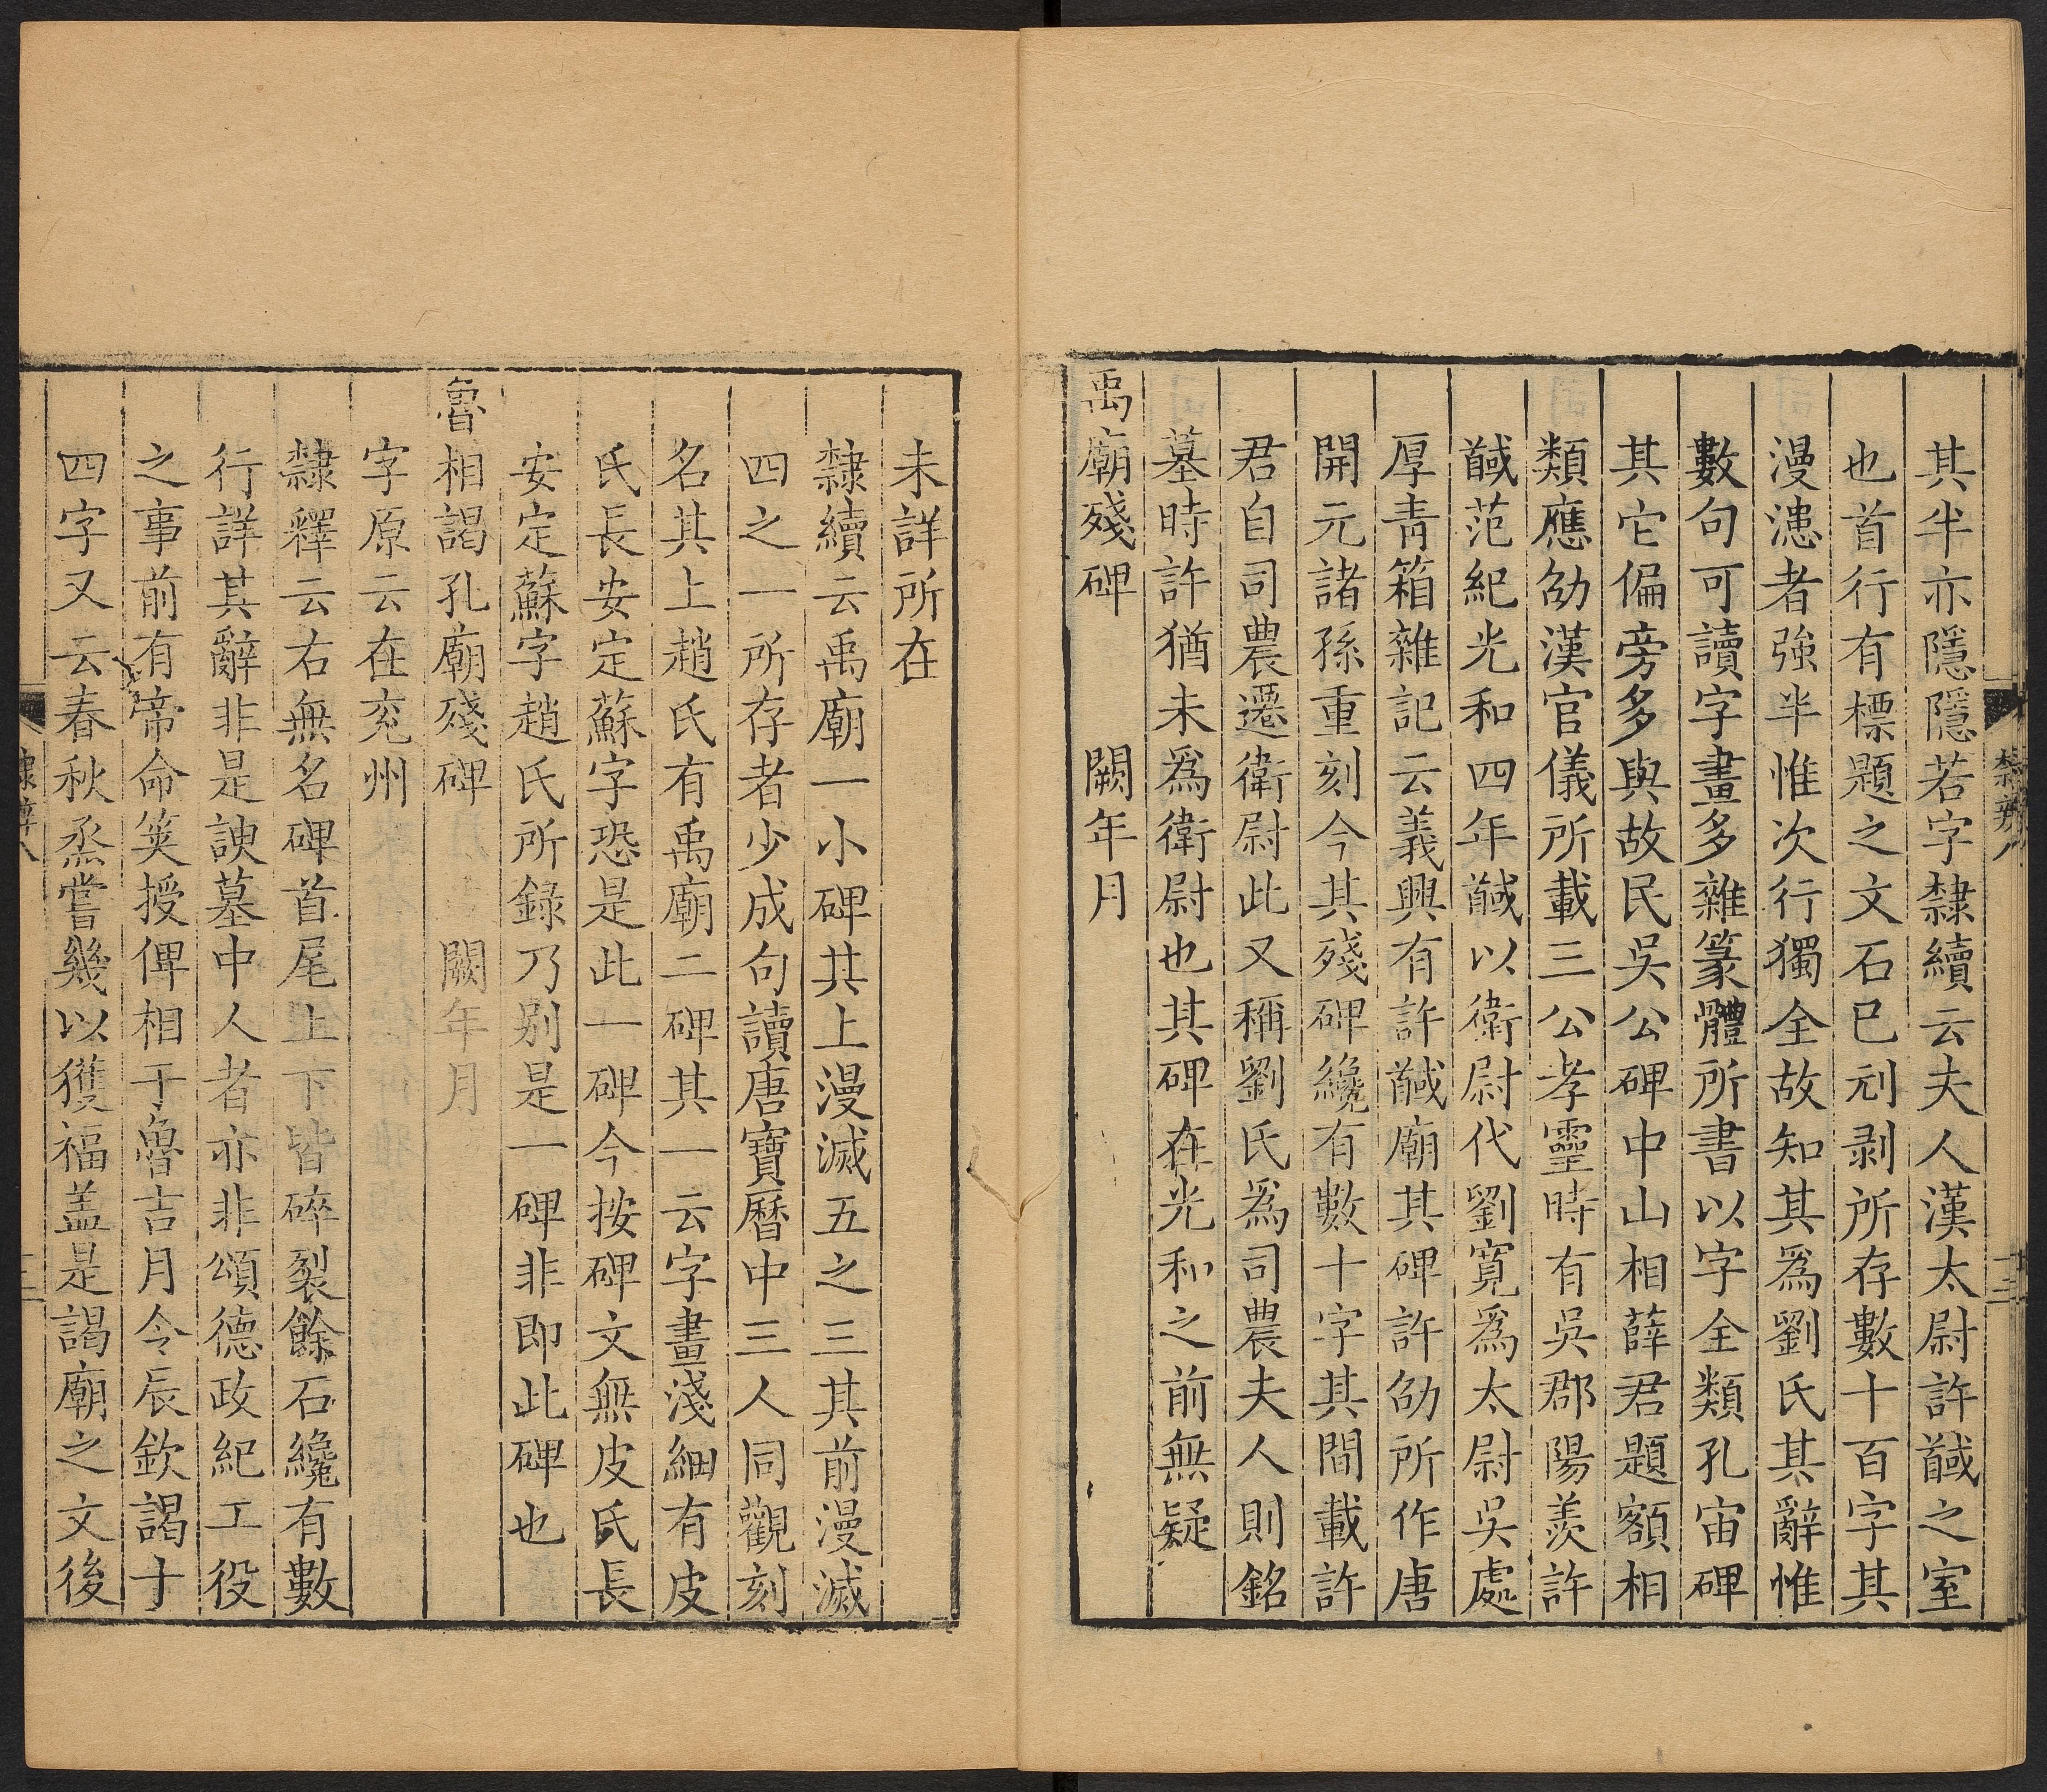 其半亦隱隱若字隸續云夫人漢太尉許馘之室
也首行有標題之文石已刓剥所存數十百字其
漫漶者強半惟次行獨全故知其爲劉氏其辭惟
數句可讀字畫多雜篆體所書以字全類孔宙碑
其它偏旁多與故民吳公碑中山相薛君題額相
類應劭漢官儀所載三公孝靈時有吳郡陽羨許
馘范紀光和四年馘以衛尉代劉寬爲太尉吳處
厚青箱雜記云義興有許馘廟其碑許劭所作唐
開元諸孫重刻今其殘碑纔有數十字其間載許
君自司農遷衛尉此又稱劉氏爲司農夫人則銘
墓時許猶未爲衛尉也其碑在光和之前無疑
禹廟殘碑 闕年月
未詳所在
隸續云禹廟一小碑其上漫滅五之三其前漫滅
四之一所存者少成句讀唐寶曆中三人同觀刻
名其上趙氏有禹廟二碑其一云字畫淺細有皮
氏長安定蘇字恐是此一碑今按碑文無皮氏長
安定蘇字趙氏所錄乃别是一碑非即此碑也
魯相謁孔廟殘碑 闕年月
字原云在兖州
隸釋云右無名碑首尾上下皆碎裂餘石纔有數
行詳其辭非是諛墓中人者亦非頌德政紀工役
之事前有帝命筴授俾相于魯吉月令辰欽謁十
四字又云春秋烝嘗幾以獲福盖是謁廟之文後
隸辨八